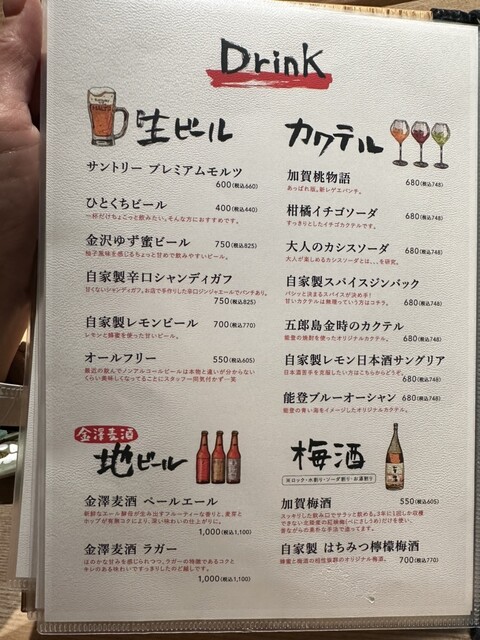 Drink
生ビール
サントリー プレミアムモルツ
600(税込660)
ひとくちビール 400(税込440)
一杯だけちょこっと飲みたい。そんな方におすすめです。
金沢ゆず蜜ビール 750(税込825)
柚子風味を感じるちょっと甘めで飲みやすいビール。
自家製辛口シャンディガフ
甘くないシャンディガフ。お店で手作りした辛口ジンジャエールでパンチあり。
750(税込825)
自家製レモンビール 700(税込770)
レモンと蜂蜜を使った甘いビール。
オールフリー 550(税込605)
最近の飲んでノンアルコールビールは本物と違いが分からない
くらい美味しくなってることにスタッフ一同気付かず…笑
金澤麦酒
地ビール
金澤麦酒 ペールエール
新鮮なエール酵母が生み出すフルーティーな香りと、麦芽と
ホップが有機コクにより、深い味わいの仕上がりに。
1,000(税込1,100)
金澤麦酒 ラガー
ほのかな甘みを感じられつつ、ラガーの特徴であるコクと
キレのある味わいですっきりしたのど越しです。
1,000(税込1,100)
カクテル
加賀桃物語 680(税込748)
あっぱれ屈。新レゲエパンチ。
柑橘イチゴソーダ 680(税込748)
すっきりとしたイチゴカクテルです。
大人のカシスソーダ 680(税込748)
大人が楽しめるカシスソーダとは…を研究。
自家製スパイスジンバック
バシッと決まるスパイスが決め手!
甘いカクテルは無理っていう方はコチラ。 680(税込748)
五郎島金時のカクテル
能登の焼酎を使ったオリジナルカクテル。 680(税込748)
自家製レモン日本酒サングリア
日本酒苦手を克服したい方はこちらからどうぞ。
680(税込748)
能登ブルーオーシャン 680(税込748)
能登の青い海をイメージしたオリジナルカクテル。
梅酒
※ロック・水割り・ソーダ割り・お湯割り
加賀梅酒 550(税込605)
スッキリした飲み口でサラりと飲める。3年に1回しか収穫
できない北陸産の紅映梅(べにさしうめ)だけを使い、
昔ながらの素朴な手法で造ってます。
自家製 はちみつ檸檬梅酒
蜂蜜と梅酒の相性抜群のオリジナル梅酒。 700(税込770)